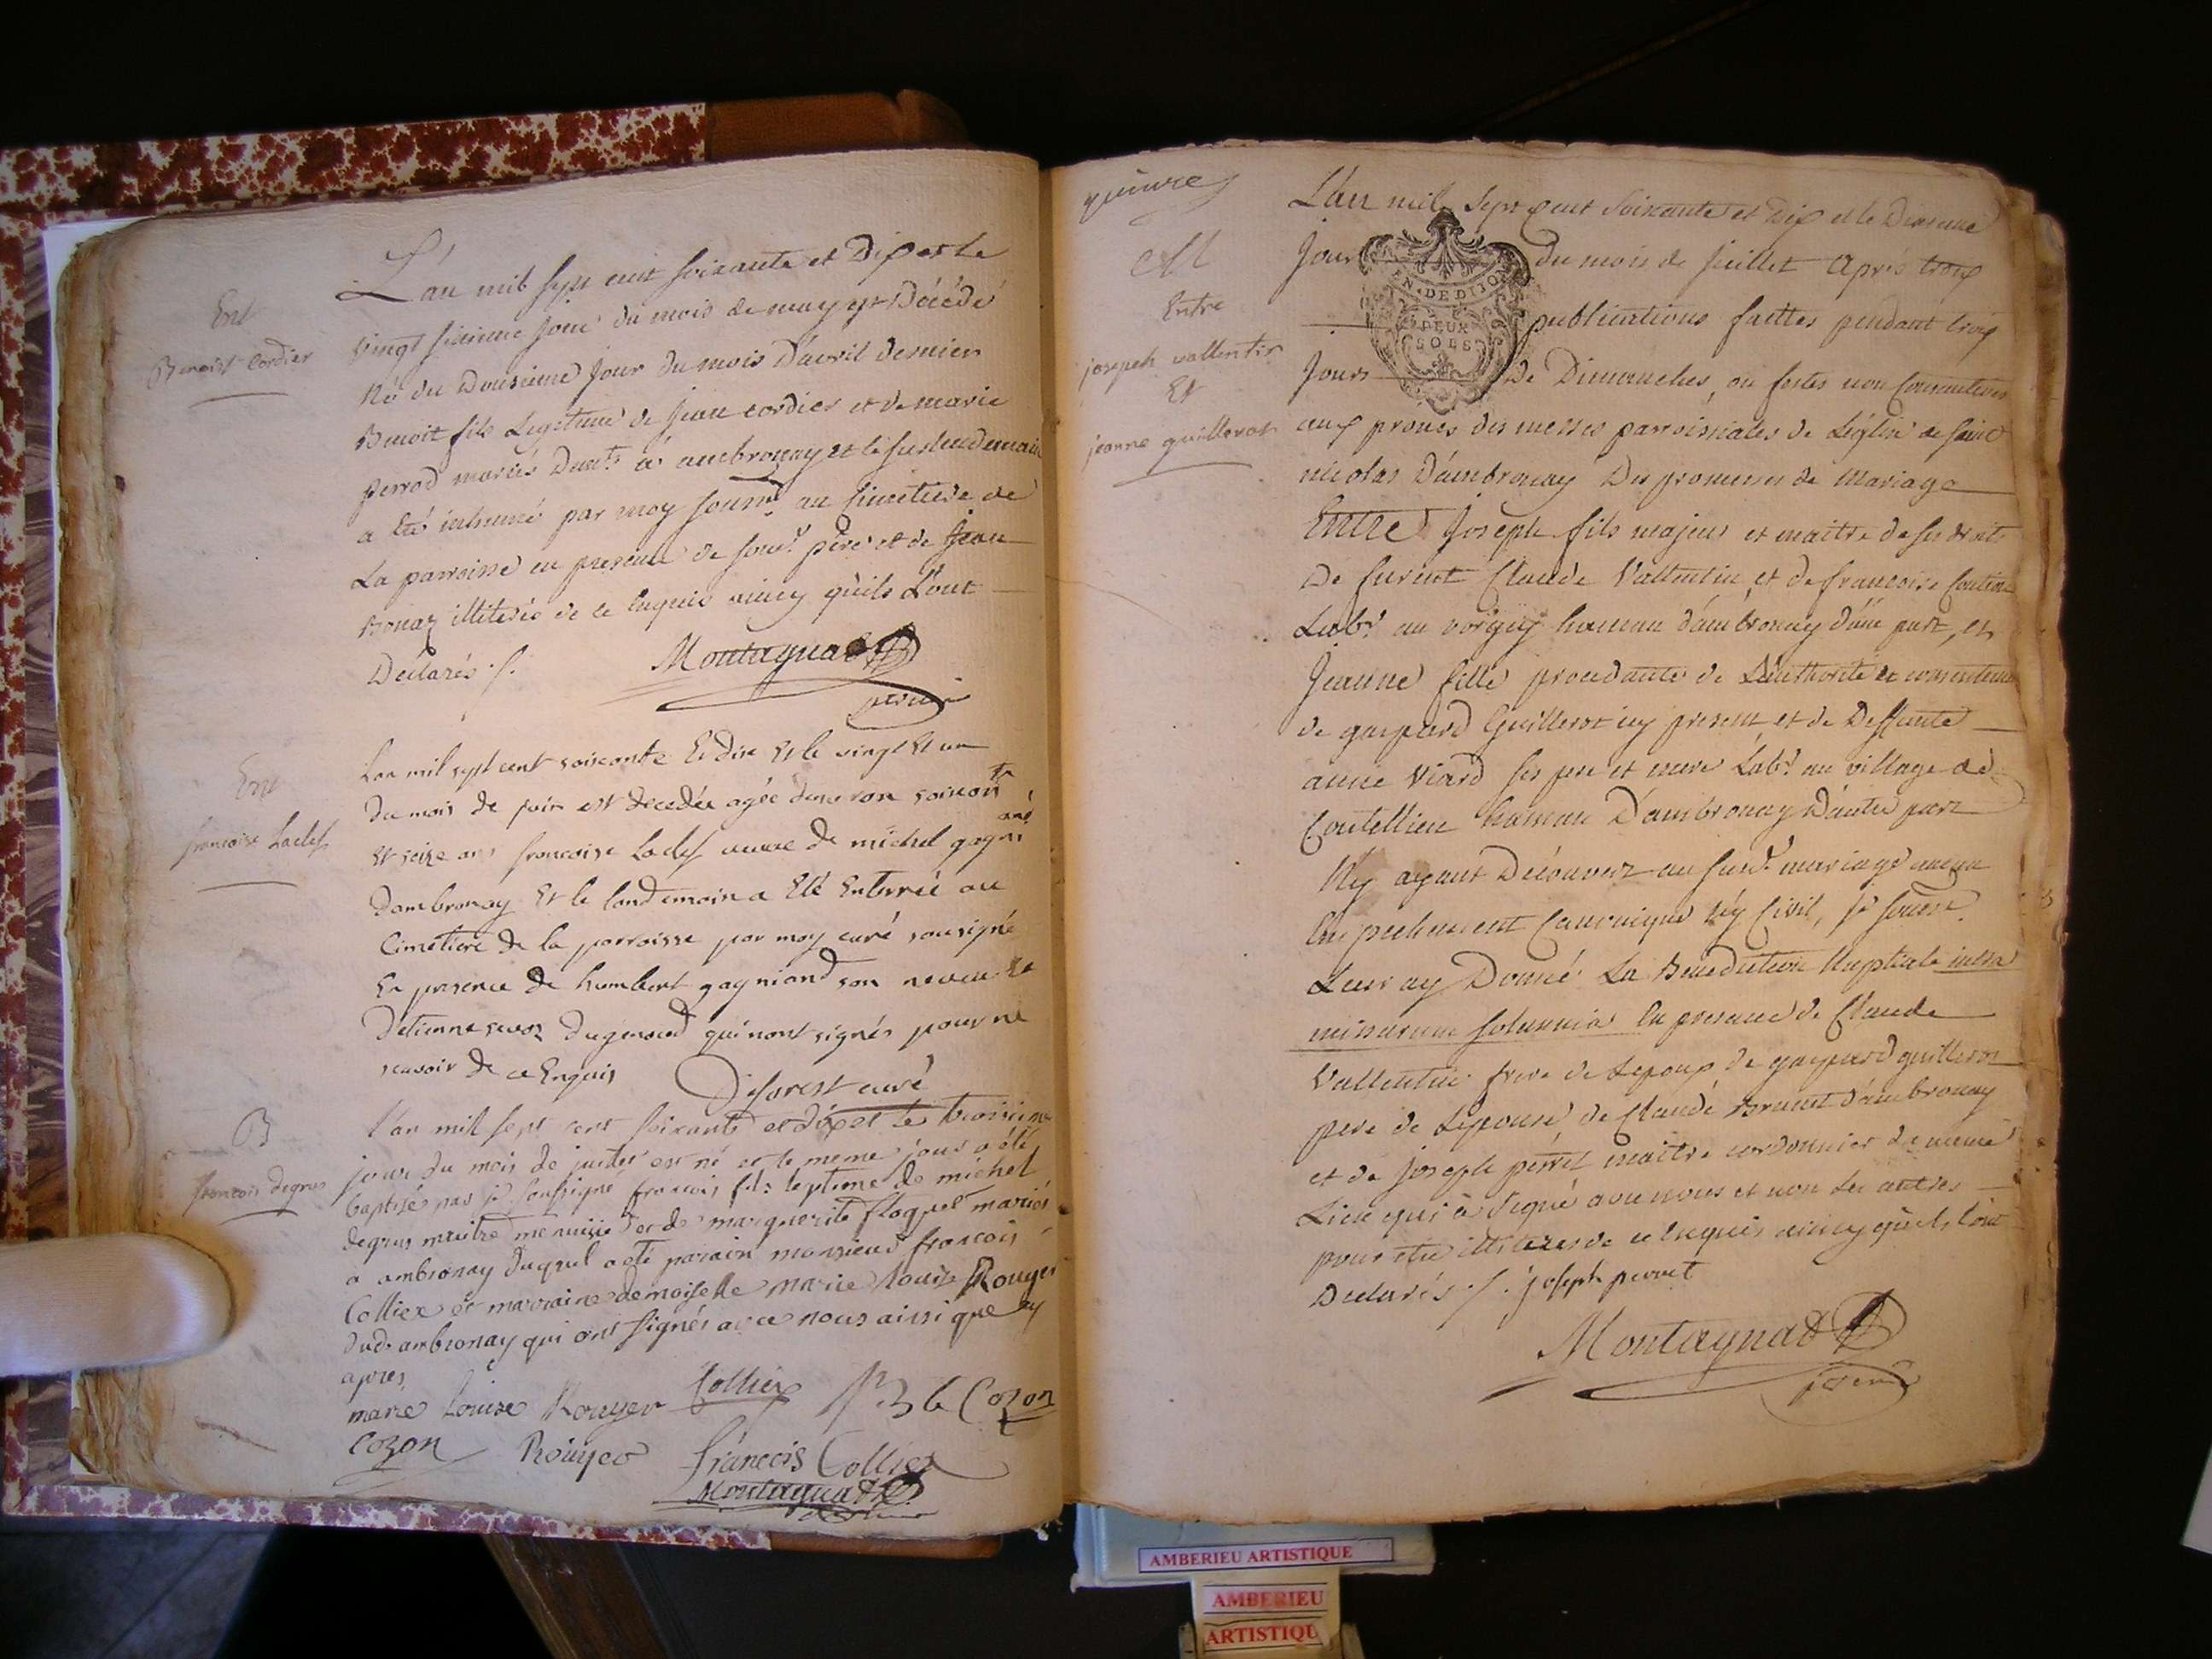 Ent
Benoist Cordier
L'an mil sept cent soixante et Dix et le
vingt sixieme jour du mois de may est Décédé
né du Douzieme jour du mois D'avril dernier
Benoit fils Legitime de jean cordier et de marie
perrod mariés Dem.ts à ambronay et le surlendemain
a été inhumé par moy souss.né au Cimetiere de
La parroisse en presence de son d. père et de Jean
Bonaz illiterés de ce Enquis aincy qu'ils L'ont
Déclarés ./.
Montagnad
vicaire
Ent
francoise Laclef
Lan mil sept cent soixante Et dix Et le vingt Et un
du mois de juin est decedée agée denviron soixante
Et seize ans francoise Laclef veuve de michel gagniand
Dambronay Et le landemain a Eté Enterrée au
Cimetiere de la parroisse par moy curé sousigné
En presence de humbert gagniand son neveu Et
Detienne savoz Dugenoud qui nont signés pour ne
scavoir de ce Enquis
Deforest curé
B
francois degrus
l'an mil sept cent soixante et dix et le troisieme
jour du mois de juillet est né et le meme jour a été
baptisé par je soussigné francois fils legitime de michel
degrus maitre menuisier et de marguerite floquet mariés
a ambronay duquel a eté parain monsieur francois
Collier et marraine demoiselle marie louise Rouyer
dud. ambronay qui ont signés avec nous ainsi que cy
apres
marie Louise Rouyer Collier B le Cozon
Cozon Rouyer francois Collier
Montagnad
vicaire
M
Entre
joseph vallentin
Et
jeanne guillerot
L'an mil sept Cent soixante et Dix et le Dixieme
Jour du mois de juillet Apres trois
EN. DE DIJON
DEUX
SOLS
publications faittes pendant trois
jours De Dimanches, ou festes non Consecutives
aux prônes des messes parroissiales de L'église de saint
nicolas D'ambronay Des promesses de Mariage
Entre Joseph fils majeur et maitre de ses droits
De furent Claude Vallentin, et de francoise Coutier
Lab.r au vorgey hameau d'ambronay d'une part, et
Jeanne fille procedante de L'authorité et consentement
de gaspard Guillerot icy present et de Deffunte
anne Viard ses pere et mere Lab.r au village de
Coutellieu hameau D'ambronay D'autre part
N'y ayant Découvert au susd. mariage aucun
Empechement Canonique n'y Civil, je souss.né
Leur ay Donné La Benediction Nuptiale intra
missarum solemnia En presence de Claude
Vallentin frere de Lepoux de gaspard guillerot
pere de Lepouse de Claude Brunet d'ambronay
et de joseph perret maitre cordonnier de meme
Lieu qui a signé avec nous et non les autres
pour etre illiteres de ce Enquis ainsy qu'ils l'ont
Declarés ./. joseph perret
Montagnad
vicaire
AMBERIEU ARTISTIQUE
AMBERIEU
ARTISTIQU